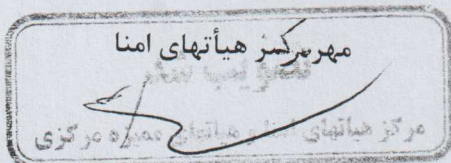 مهر مرکز هیأتهای امنا
تصویب شد
مرکز هیأتهای امنا و هیأتهای ممیزه مرکزی